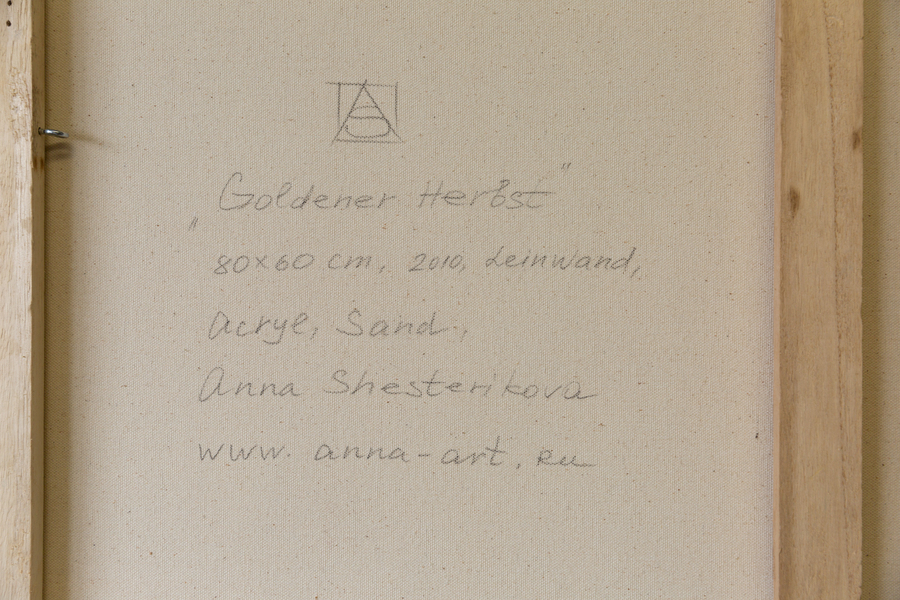 „Goldener Herbst"
80x60 cm, 2010, Leinwand,
Acryl, Sand.,
Anna Shesterikova
www.anna-art.ru